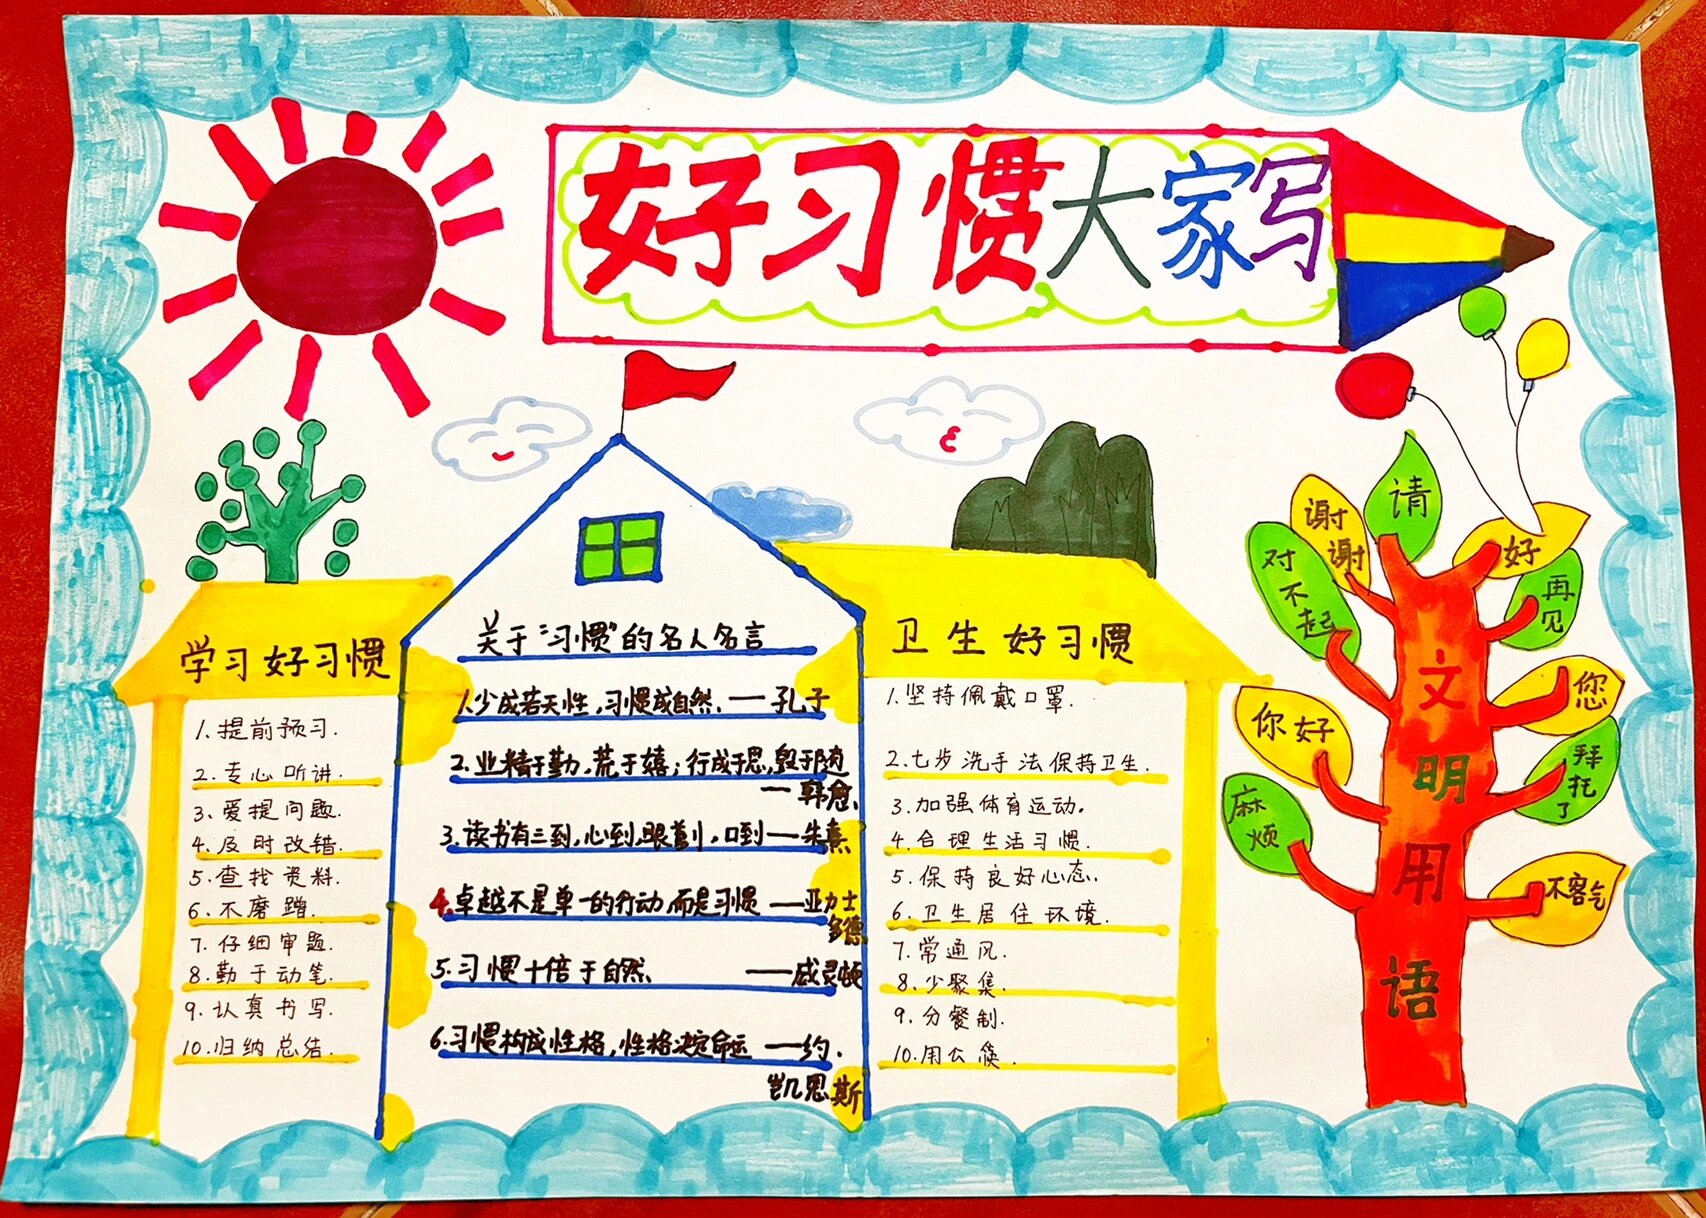 好习惯大家写
学习好习惯
1.提前预习.
2.专心听讲.
3.爱提问题.
4.及时改错.
5.查找资料.
6.不磨蹭.
7.仔细审题.
8.勤于动笔.
9.认真书写.
10.归纳总结.
关于“习惯”的名人名言
1.少成若天性,习惯成自然.——孔子
2.业精于勤,荒于嬉;行成于思,毁于随
—韩愈.
3.读书有三到,心到,眼到,口到——朱熹
4.卓越不是单一的行动,而是习惯——亚力士
多德
5.习惯十倍于自然.——威灵顿
6.习惯构成性格,性格决定命运——约.
凯恩斯
卫生好习惯
1.坚持佩戴口罩.
2.七步洗手法保持卫生.
3.加强体育运动.
4.合理生活习惯.
5.保持良好心态.
6.卫生居住环境.
7.常通风.
8.少聚集.
9.分餐制.
10.用公筷.
文明用语
请
谢谢
对不起
好
再见
您
你好
拜托了
麻烦
不客气